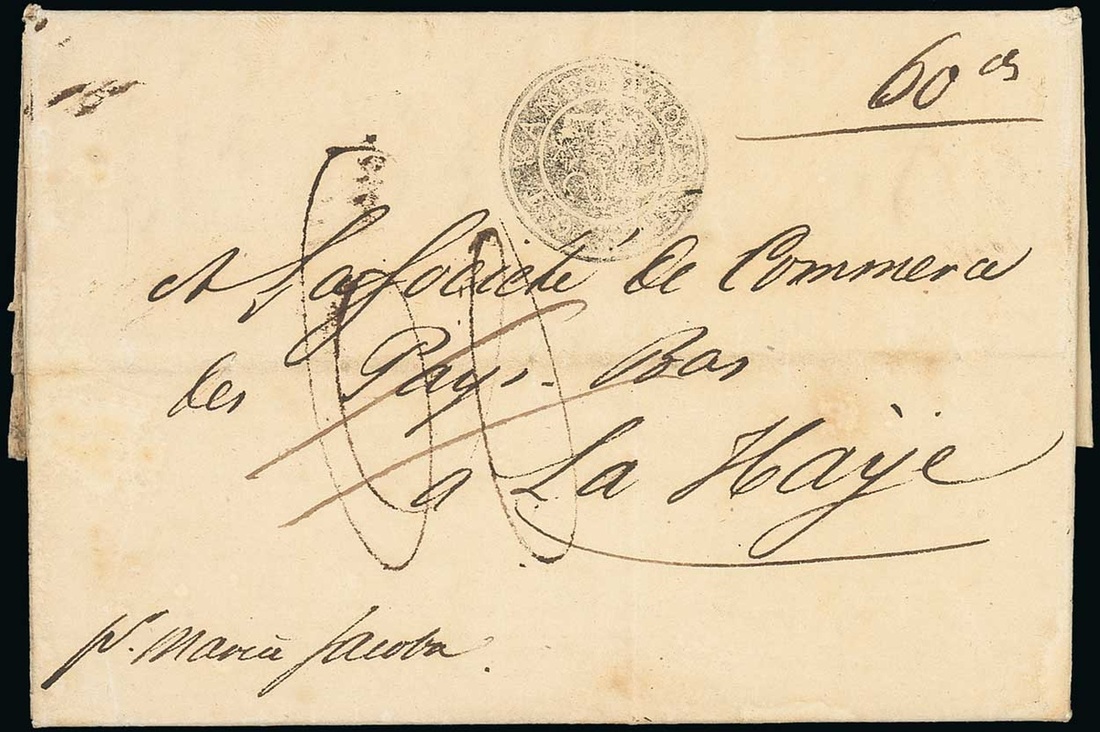 60 cs
A La Société de Commerce
des Pays-Bas
a La Haÿe
pr. Maria Jacoba.